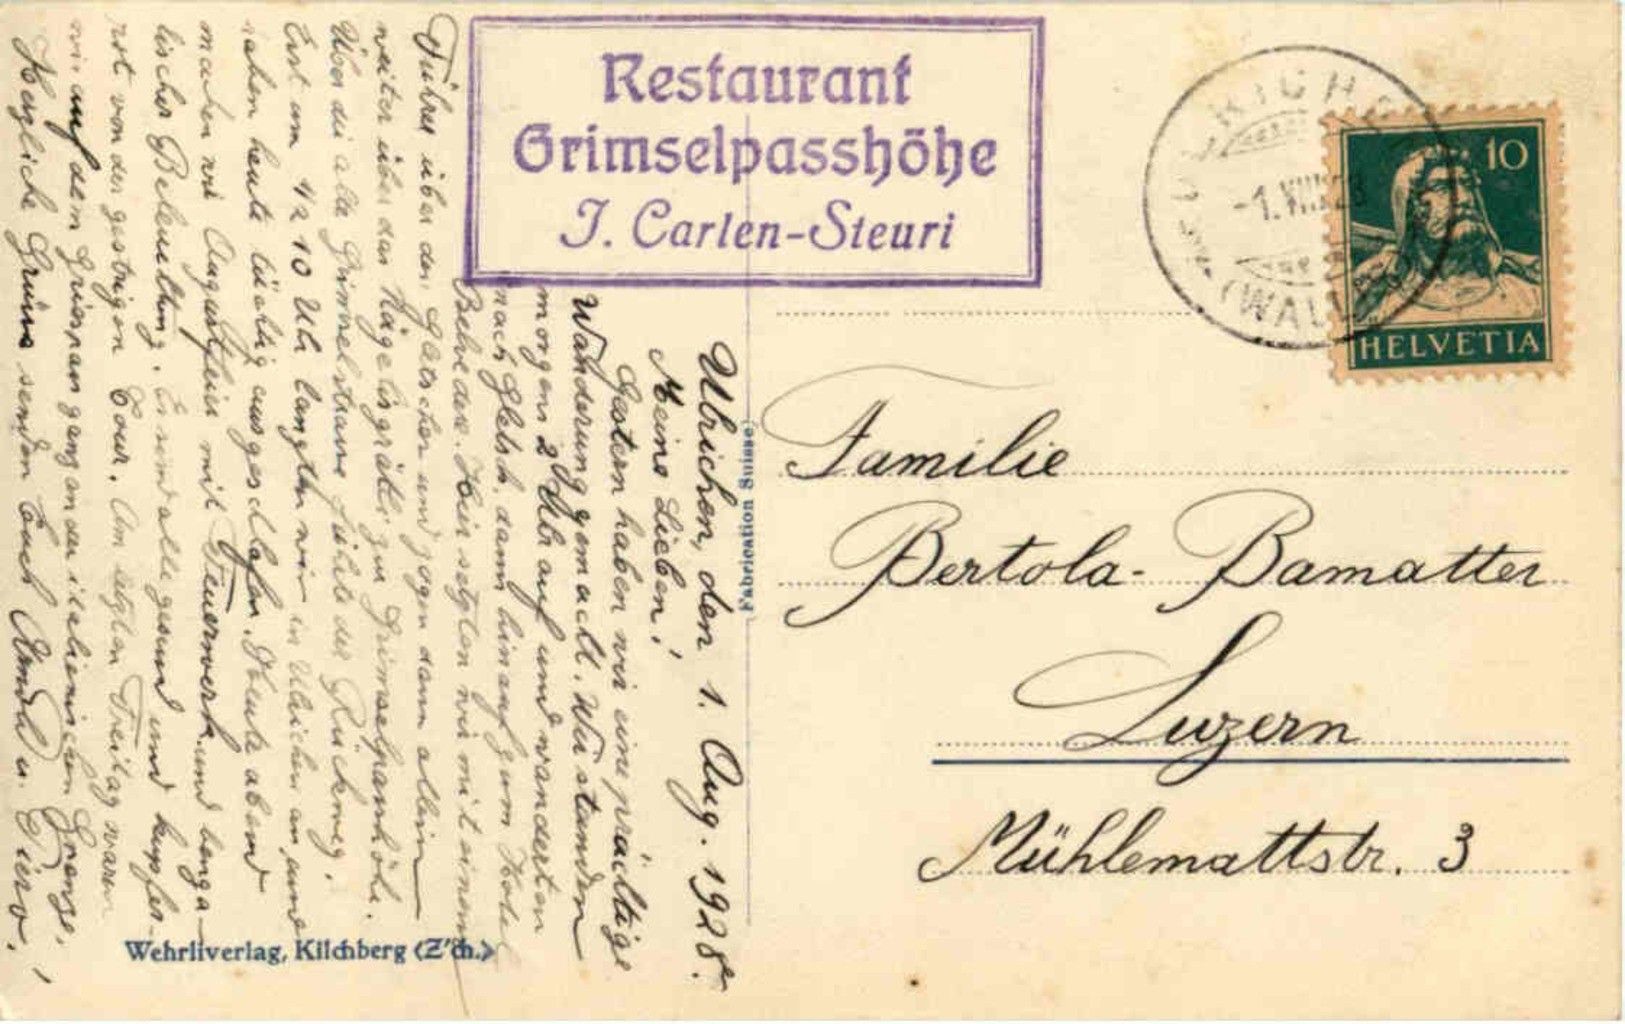 Restaurant
Grimselpasshöhe
J. Carlen-Steuri
ULRICHEN
-1.VIII.28
(WALLIS)
10
HELVETIA
Familie
Bertola-Bamatter
Luzern
Mühlemattstr. 3
(Fabrication Suisse)
Wehrliverlag, Kilchberg (Z'ch.)
Ulrichen, den 1. Aug. 1928.
Meine Lieben!
Gestern haben wir eine prächtige
Wanderung gemacht. Wir standen
morgens 2 Uhr auf und wanderten
nach Gletsch, dann hinauf zum Hotel
Belvedere. Hier setzten wir mit einem
Führer über den Gletscher und zogen dann allein
weiter über das Nägelisgrätli zur Grimselpasshöhe.
Über die alte Grimselstrasse führte der Rückweg.
Erst um 1/2 10 Uhr langten wir in Ulrichen an und
haben heute tüchtig ausgeschlafen. Heute abend
machen wir Augustfeier mit Feuerwerk und benga-
lischer Beleuchtung. Es sind alle gesund und
von der gestrigen Tour. Am letzten Freitag waren
wir auf dem Griespass ganz an der italienischen Grenze.
Herzliche Grüsse senden Euch u. Piero.